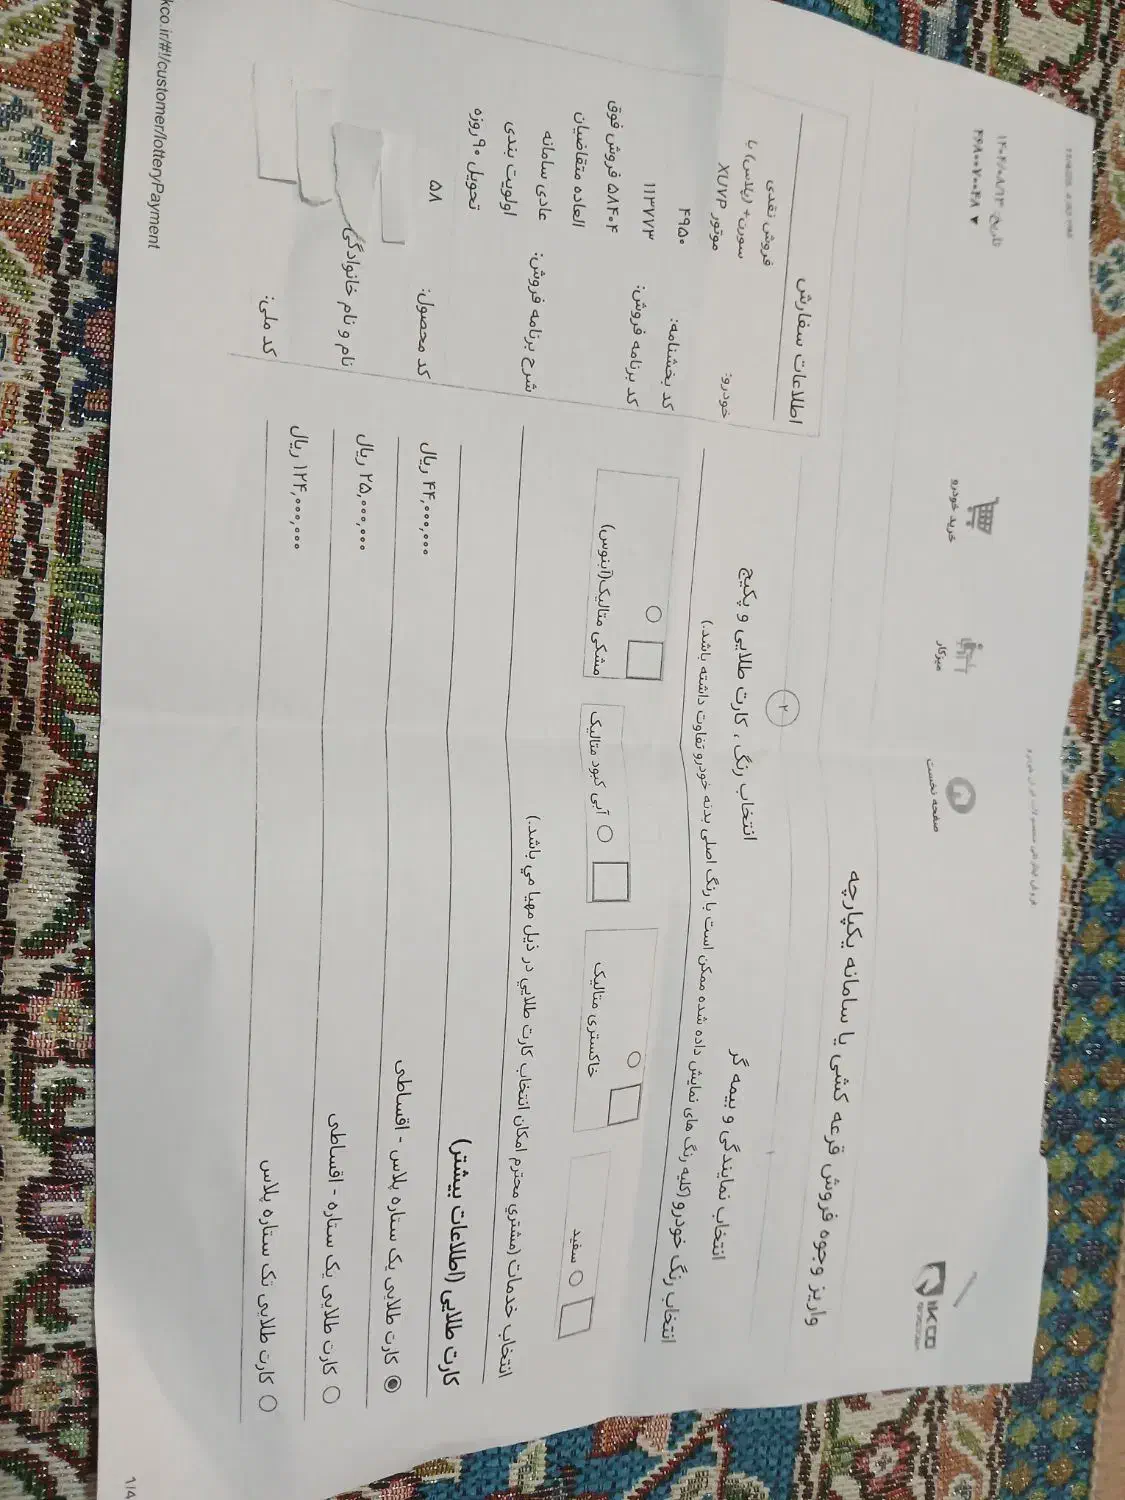 خرید خودرو
میزکار
صفحه نخست
IKCO
واریز وجوه فروش قرعه کشی یا سامانه یکپارچه
۲
انتخاب رنگ ، کارت طلایی و پکیج
انتخاب نمایندگی و بیمه گر
انتخاب رنگ خودرو (کلیه رنگ های نمایش داده شده ممکن است با رنگ اصلی بدنه خودرو تفاوت داشته باشد.)
سفید
خاکستری متالیک
آبی کبود متالیک
مشکی متالیک(آبنوس)
انتخاب خدمات (مشتري محترم امکان انتخاب کارت طلايي در ذيل مهيا مي باشد.)
کارت طلایی (اطلاعات بیشتر)
کارت طلایی یک ستاره پلاس - اقساطی ۴۴,۰۰۰,۰۰۰ ریال
کارت طلایی یک ستاره - اقساطی ۲۵,۰۰۰,۰۰۰ ریال
کارت طلایی تک ستاره پلاس ۱۲۴,۰۰۰,۰۰۰ ریال
اطلاعات سفارش
خودرو: فروش نقدی
سورن+ (پلاس) با
موتور XU7P
کد بخشنامه: ۴۹۵۰
کد برنامه فروش: ۱۱۳۷۷۳
شرح برنامه فروش: ۵۸۴۰۴ فروش فوق
العاده متقاضیان
عادی سامانه
اولویت بندی
تحویل ۹۰روزه
کد محصول: ۵۸
نام و نام خانوادگی
کد ملی:
kco.ir/#!/customer/lotteryPayment
1/4